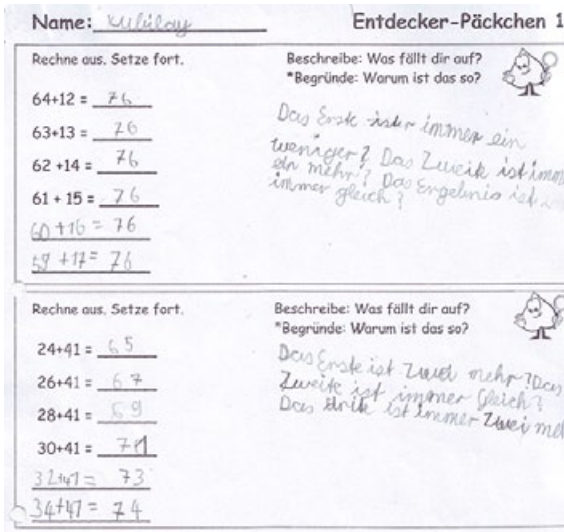 Name: Kubilay
Entdecker-Päckchen 1
Rechne aus. Setze fort.
64+12 = 76
63+13 = 76
62 +14 = 76
61 + 15 = 76
60 +16 = 76
59 +17 = 76
Beschreibe: Was fällt dir auf?
*Begründe: Warum ist das so?
Das Erste immer ein
weniger? Das Zweite ist imm
ein mehr? Das Ergebnis ist
immer gleich?
Rechne aus. Setze fort.
24+41 = 65
26+41 = 67
28+41 = 69
30+41 = 71
32+41 = 73
34+41 = 74
Beschreibe: Was fällt dir auf?
*Begründe: Warum ist das so?
Das Erste ist Zwei mehr? Das
Zweite ist immer Gleich?
Das drite ist immer Zwei meh